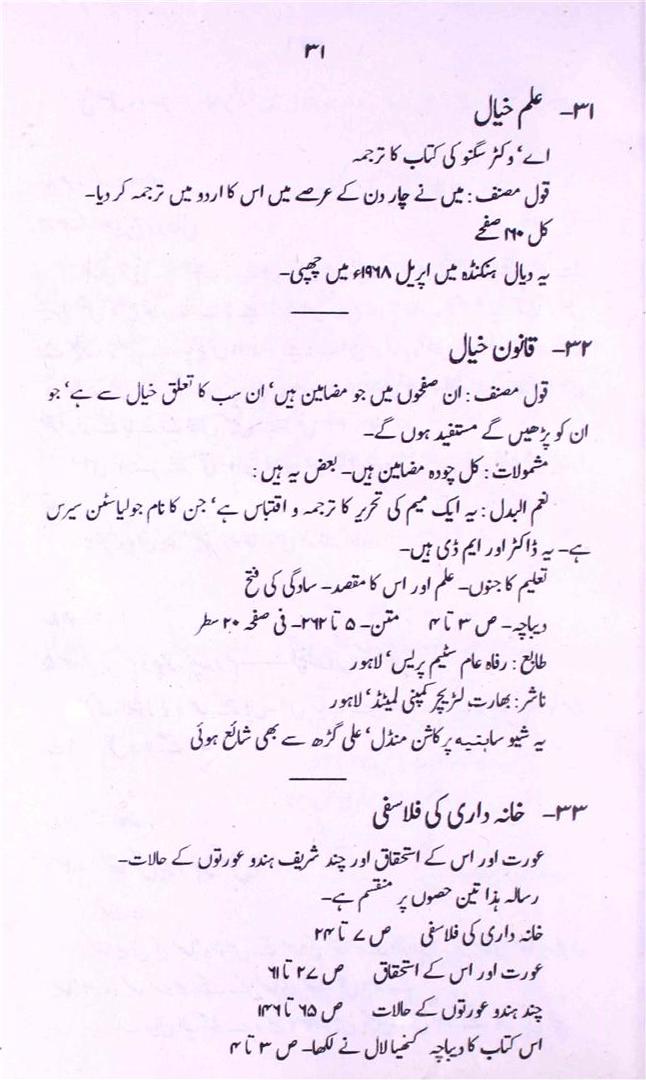 ۳۱
۳۱- علم خیال
اے، وکٹر سگنو کی کتاب کا ترجمہ
قول مصنف : میں نے چار دن کے عرصے میں اس کا اردو میں ترجمہ کر دیا-
کل ۲۶۰ صفحے
یہ دیال ہنکنڈہ میں اپریل ۱۹۶۸ء میں چھپی-
۳۲- قانون خیال
قول مصنف : ان صفحوں میں جو مضامین ہیں، ان سب کا تعلق خیال سے ہے، جو
ان کو پڑھیں گے مستفید ہوں گے-
مشمولات : کل چودہ مضامین ہیں- بعض یہ ہیں :
نعم البدل : یہ ایک میم کی تحریر کا ترجمہ و اقتباس ہے، جن کا نام جولیاسٹن سیرس
ہے- یہ ڈاکٹر اور ایم ڈی ہیں-
تعلیم کا جنوں- علم اور اس کا مقصد- سادگی کی فتح
دیباچہ- ص ۳ تا ۴ متن- ۵ تا ۲۶۲- فی صفحہ ۲۰ سطر
طابع : رفاہ عام سٹیم پریس، لاہور
ناشر : بھارت لٹریچر کمپنی لمیٹڈ، لاہور
یہ شیو ساہتیہ پرکاشن منڈل، علی گڑھ سے بھی شائع ہوئی
۳۳- خانہ داری کی فلاسفی
عورت اور اس کے استحقاق اور چند شریف ہندو عورتوں کے حالات-
رسالہ ہذا تین حصوں پر منقسم ہے-
خانہ داری کی فلاسفی ص ۷ تا ۲۴
عورت اور اس کے استحقاق ص ۲۷ تا ۶۱
چند ہندو عورتوں کے حالات ص ۶۵ تا ۱۴۶
اس کتاب کا دیباچہ کنھیا لال نے لکھا- ص ۳ تا ۴